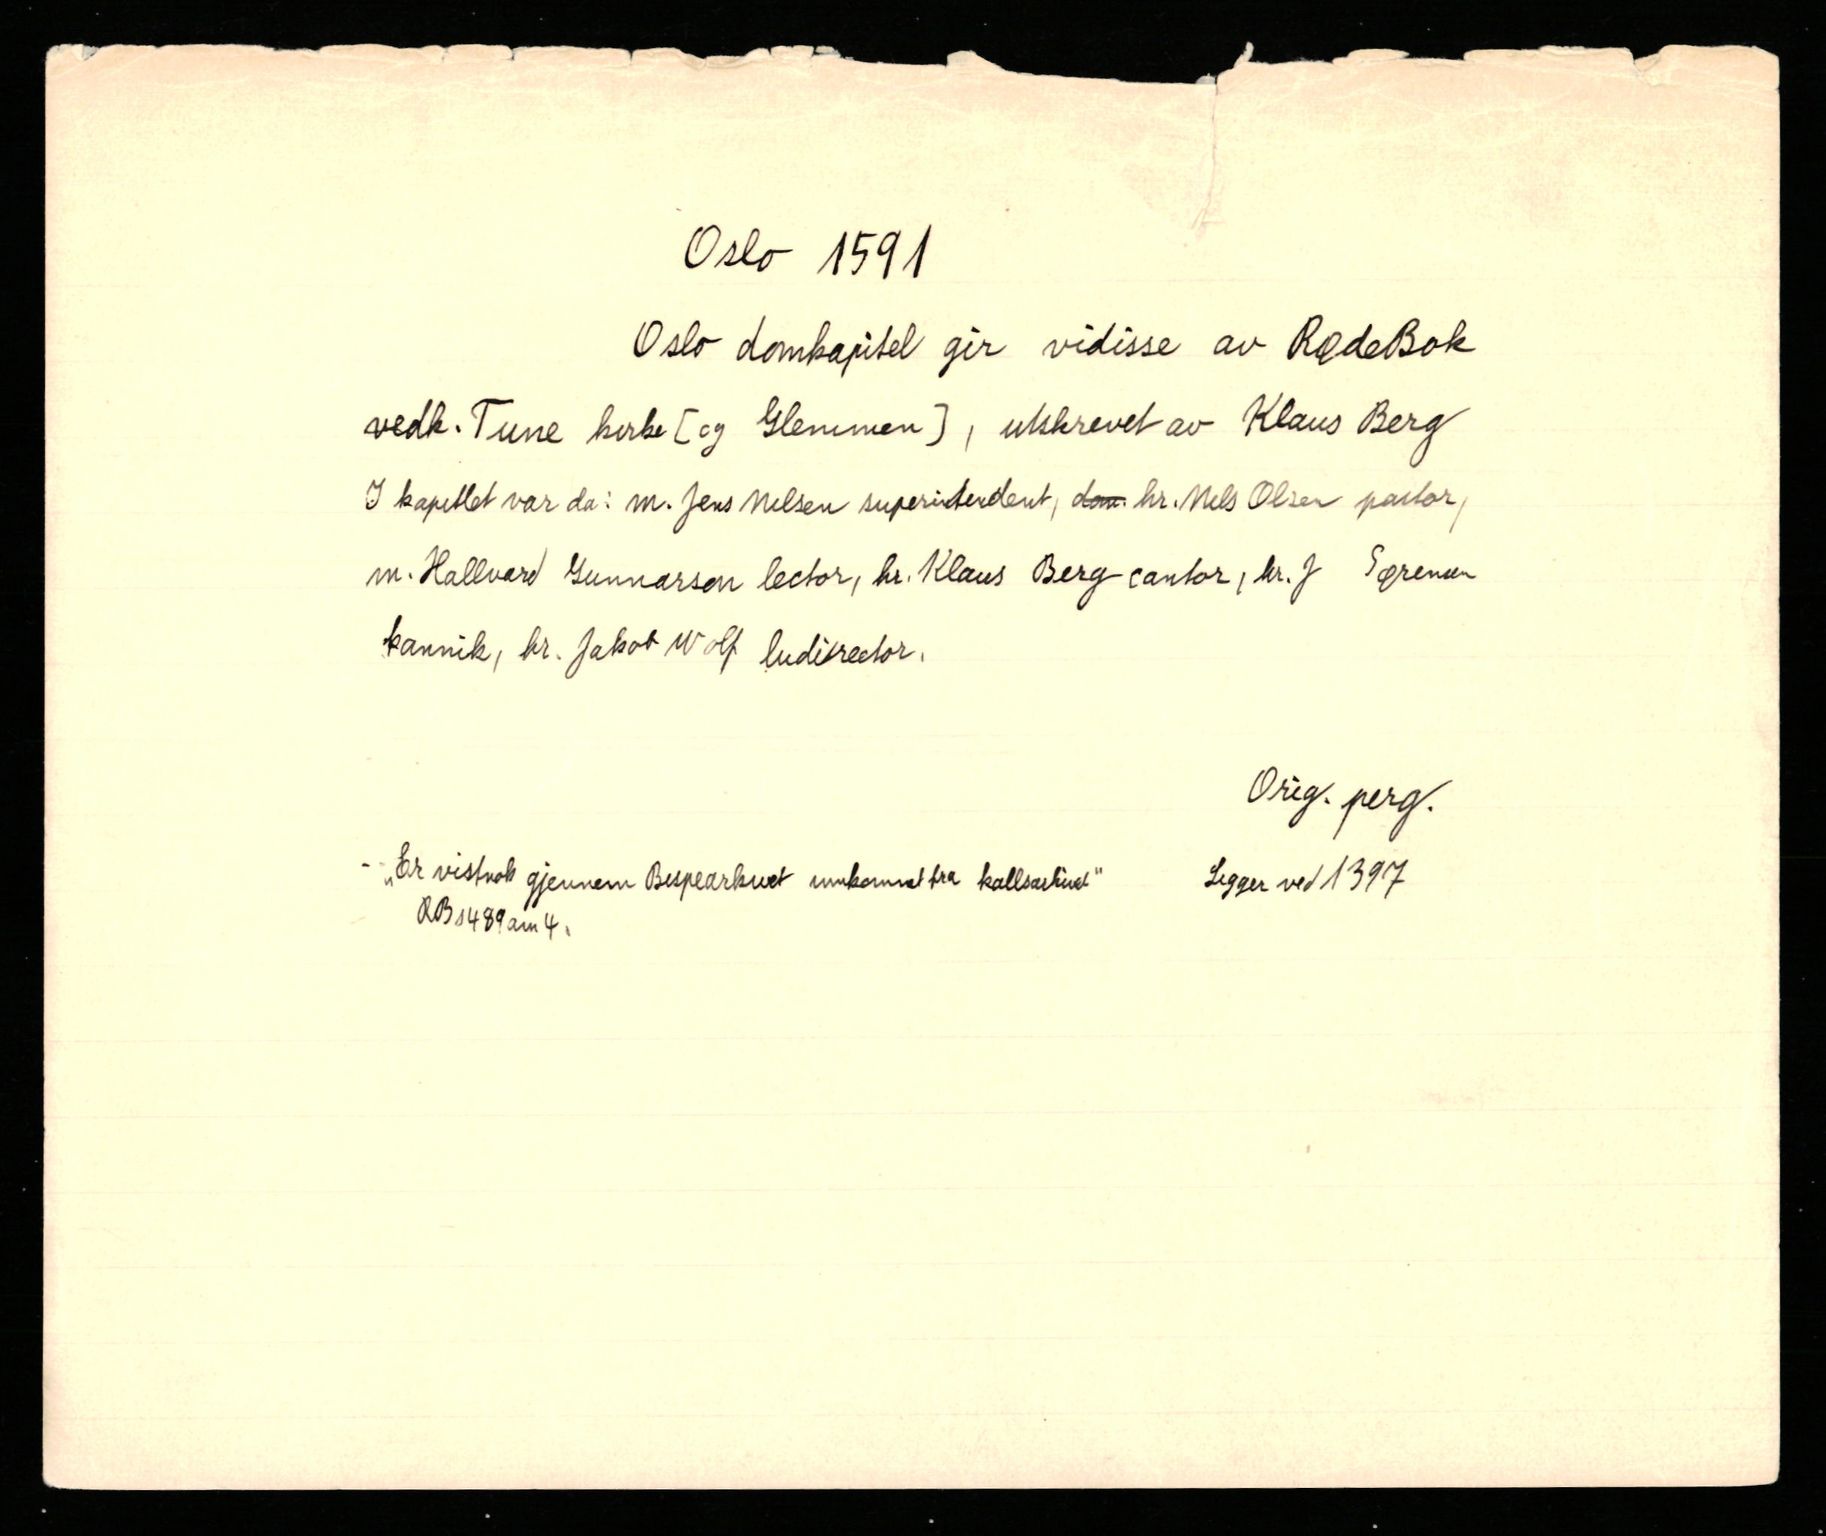 Oslo 1591
Oslo domkapitel gir vidisse av RødeBok
vedk. Tune kirke [og Glemmen], utskrevet av Klaus Berg
I kapitlet var da: m. Jens Nilsen superintendent, dom. hr. Nils Olsen pastor,
m. Hallvard Gunnarson lector, hr. Klaus Berg cantor, hr. J Sørensen
kannik, hr. Jakob Wolf ludirector.
Orig. perg.
- „Er vistnok gjennem Bispearkivet innkommet fra kallsarkivet"
Ligger ved 1397
RB s 489 anm 4.